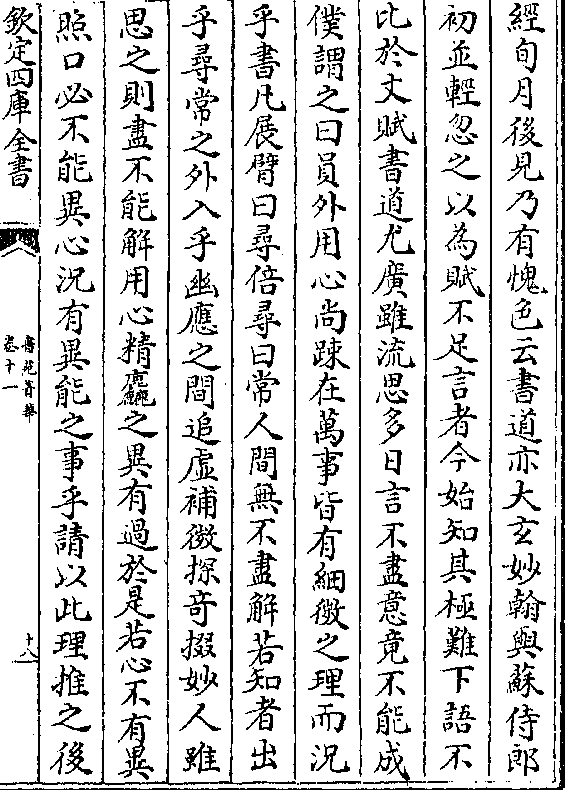 經旬月後見乃有愧色云書道亦大玄妙翰與蘇侍郎
初並輕忽之以為賦不足言者今始知其極難下語不
比於丈賦書道尤廣雖流思多日言不盡意竟不能成
僕謂之曰員外用心尚踈在萬事皆有細微之理而況
乎書凡展臂曰尋倍尋曰常人間無不盡解若知者出
乎尋常之外入乎幽應之間追虛補微探奇掇妙人雖
思之則盡不能解用心精麤之異有過於是若心不有異
照口必不能異心況有異能之事乎請以此理推之後
欽定四庫全書
書苑菁華
卷十一
十八